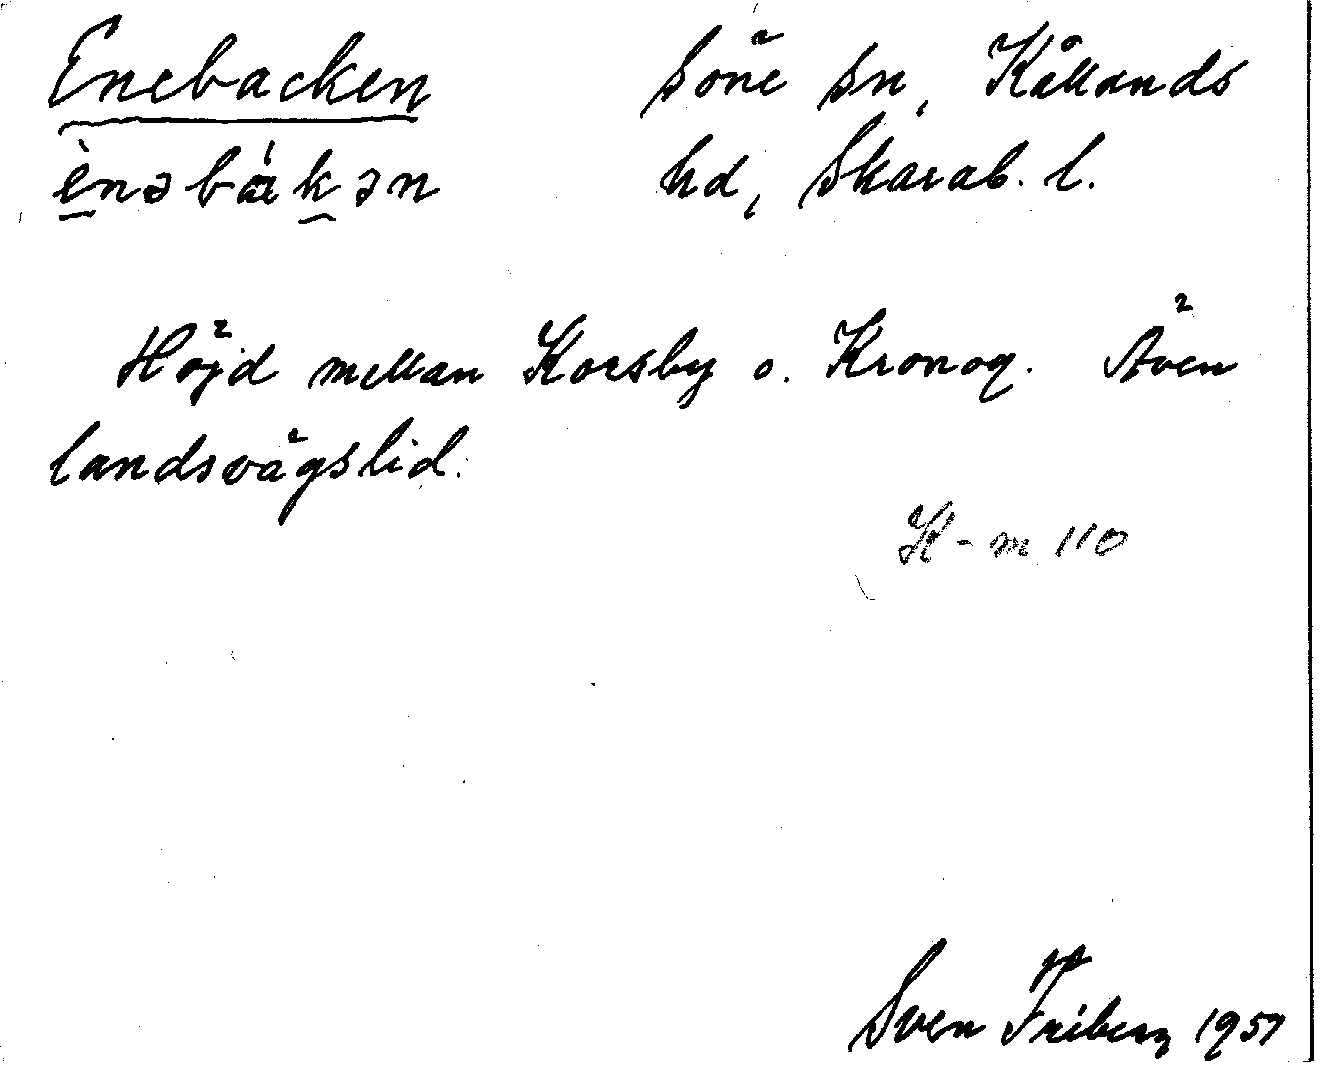 Enebacken
Söne sn, Kållands
ènəbák̰ən
hd, Skarab. l.
Höjd mellan Korsby o. Kronog. Även
landsvägslid.
K-m 110
Sven Friberg 1957